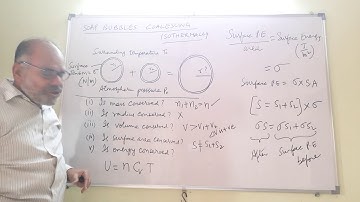 SOAP BUBBLES COALESCING
(ISOTHERMALLY)
Surrounding Temperature T₀
Surface Tension σ
(N/m)
r₁ + r₂ = r
Atmospheric pressure P₀
(i) Is mass conserved? n₁+n₂=n ✓
(ii) Is radius conserved? X
(iii) Is volume conserved? V > V₁+V₂
(iv) Is surface area conserved? S ≠ S₁+S₂
(v) Is energy conserved?
U = n Cv T
Surface PE / area = Surface Energy (J/m²)
= σ
Surface PE = σ × SA
[S = S₁+S₂] × σ
σS = σS₁ + σS₂
After Surface PE before